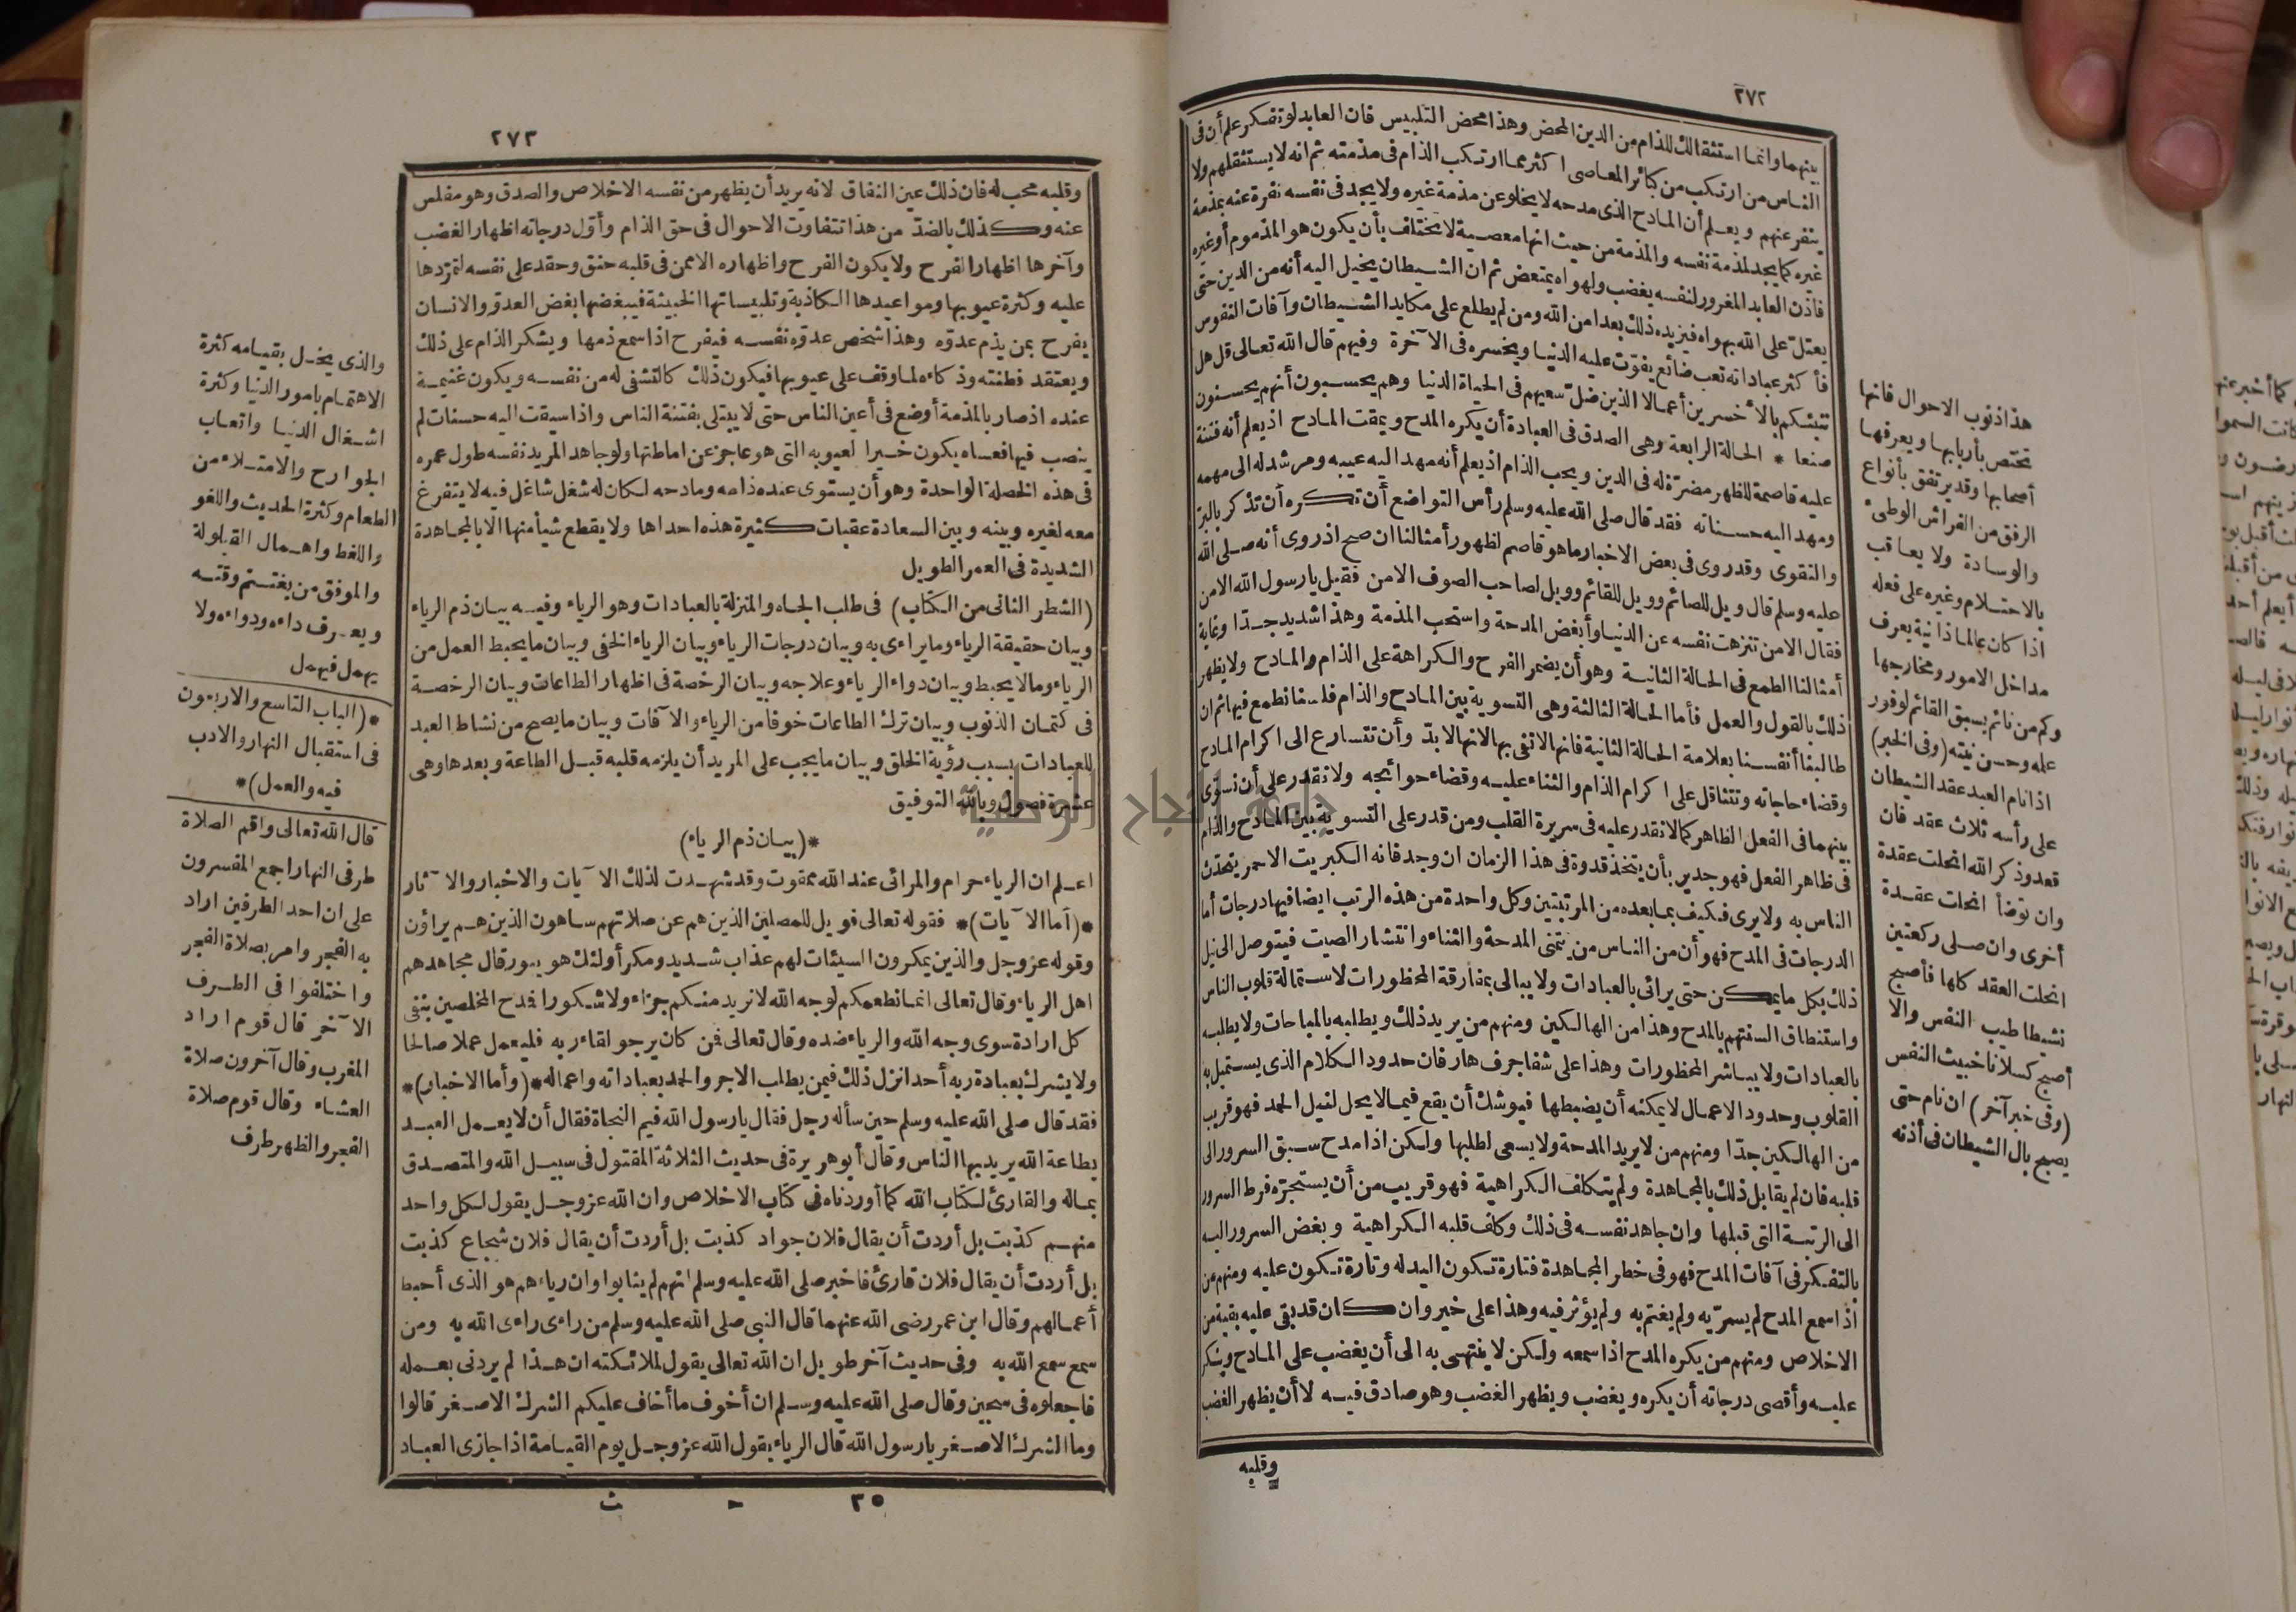 ٢٧٢
بينهما وانما استثقالك للذام من الدين المحض وهذا محض التلبيس فان العابد لو تفكر علم أن فى
الناس من ارتكب من كبائر المعاصى اكثر مما ارتكب الذام فى مذمته ثم انه لا يستثقلهم ولا
ينفر عنهم ويعلم أن المادح الذى مدحه لا يخلو عن مذمة غيره ولا يجد فى نفسه نفرة عنه بمذمة
غيره كما يجد لمذمة نفسه والمذمة من حيث انها معصية لا تختلف بأن يكون هو المذموم أو غيره
فاذن العابد المغرور لنفسه يغضب ولهواه يمتعض ثم ان الشيطان يخيل اليه أنه من الدين حتى
يعتل على الله بهواه فيزيده ذلك بعدا من الله ومن لم يطلع على مكايد الشيطان وآفات النفوس
فأكثر عباداته تعب ضائع يفوّت عليه الدنيا ويخسره فى الآخرة وفيهم قال الله تعالى قل هل
ننبئكم بالأخسرين أعمالا الذين ضلّ سعيهم فى الحياة الدنيا وهم يحسبون أنهم يحسنون
صنعا * الحالة الرابعة وهى الصدق فى العبادة أن يكره المدح ويمقت المادح اذ يعلم أنه فتنة
عليه قاصمة للظهر مضرّة له فى الدين ويحب الذام اذ يعلم أنه مهد اليه عيبه ومرشد له الى مهمه
ومهد اليه حسناته فقد قال صلى الله عليه وسلم رأس التواضع أن تكره أن تذكر بالبرّ
والتقوى وقد روى فى بعض الاخبار ما هو قاصم لظهور أمثالنا ان صح اذ روى أنه صلى الله
عليه وسلم قال ويل للصائم وويل للقائم وويل لصاحب الصوف الا من فقيل يا رسول الله الا من
فقال الا من تنزهت نفسه عن الدنيا وأبغض المدحة واستحب المذمة وهذا شديد جدّا وغاية
أمثالنا الطمع فى الحالة الثانية وهو أن يضمر الفرح والكراهة على الذام والمادح ولا يظهر
ذلك بالقول والعمل فأما الحالة الثالثة وهى التسوية بين المادح والذام فلسنا نطمع فيها ثم ان
طالبنا أنفسنا بعلامة الحالة الثانية فانها لا تفى بها لانها لا بدّ وأن تتسارع الى اكرام المادح
وقضاء حاجاته وتتثاقل على اكرام الذام والثناء عليه وقضاء حوائجه ولا نقدر على أن نسوّى
بينهما فى الفعل الظاهر كما لا نقدر عليه فى سريرة القلب ومن قدر على التسوية بين المادح والذام
فى ظاهر الفعل فهو جدير بأن يتخذ قدوة فى هذا الزمان ان وجد فانه الكبريت الاحمر يتحدّث
الناس به ولا يرى فكيف بما بعده من المرتبتين وكل واحدة من هذه الرتب ايضا فيها درجات أما
الدرجات فى المدح فهو أن من الناس من يتمنى المدحة والثناء وانتشار الصيت فيتوصل الى نيل
ذلك بكل ما يمكن حتى يرائى بالعبادات ولا يبالى بمقارفة المحظورات لاستمالة قلوب الناس
واستنطاق السنتهم بالمدح وهذا من الهالكين ومنهم من يريد ذلك ويطلبه بالمباحات ولا يطلبه
بالعبادات ولا يباشر المحظورات وهذا على شفا جرف هار فان حدود الكلام الذى يستميل به
القلوب وحدود الاعمال لا يمكنه أن يضبطها فيوشك أن يقع فيما لا يحل لنيل الحمد فهو قريب
من الهالكين جدّا ومنهم من لا يريد المدحة ولا يسعى لطلبها ولكن اذا مدح سبق السرور الى
قلبه فان لم يقابل ذلك بالمجاهدة ولم يتكلف الكراهية فهو قريب من أن يستجرّه فرط السرور
الى الرتبة التى قبلها وان جاهد نفسه فى ذلك وكلف قلبه الكراهية وبغض السرور اليه
بالتفكر فى آفات المدح فهو فى خطر المجاهدة فتارة تكون اليد له وتارة تكون عليه ومنهم من
اذا سمع المدح لم يسرّ به ولم يغتم به ولم يؤثر فيه وهذا على خير وان كان قد بقى عليه بقية من
الاخلاص ومنهم من يكره المدح اذا سمعه ولكن لا ينتهى به الى أن يغضب على المادح وينكر
عليه وأقصى درجاته أن يكره ويغضب ويظهر الغضب وهو صادق فيه لا أن يظهر الغضب
وقلبه
هذا ذنوب الاحوال فانها
تختص بأربابها ويعرفها
أصحابها وقد يرتفق بأنواع
الرفق من الفراش الوطىء
والوسادة ولا يعاقب
بالاحتلام وغيره على فعله
اذا كان عالما ذا نية يعرف
مداخل الامور ومخارجها
وكم من نائم يسبق القائم لوفور
علمه وحسن نيته (وفى الخبر)
اذا نام العبد عقد الشيطان
على رأسه ثلاث عقد فان
قعد وذكر الله انحلت عقدة
وان توضأ انحلت عقدة
أخرى وان صلى ركعتين
انحلت العقد كلها فأصبح
نشيطا طيب النفس والا
أصبح كسلانا خبيث النفس
(وفى خبر آخر) ان نام حتى
يصبح بال الشيطان فى أذنه
٢٧٣
وقلبه محب له فان ذلك عين النفاق لانه يريد أن يظهر من نفسه الاخلاص والصدق وهو مفلس
عنه وكذلك بالضدّ من هذا تتفاوت الاحوال فى حق الذام وأوّل درجاته اظهار الغضب
وآخرها اظهار الفرح ولا يكون الفرح واظهاره الا ممن فى قلبه حنق وحقد على نفسه لتمرّدها
عليه وكثرة عيوبها ومواعيدها الكاذبة وتلبيساتها الخبيثة فيبغضها بغض العدوّ والانسان
يفرح بمن يذم عدوّه وهذا شخص عدوّه نفسه فيفرح اذا سمع ذمها ويشكر الذام على ذلك
ويعتقد فطنته وذكاءه لما وقف على عيوبها فيكون ذلك كالتشفى له من نفسه ويكون غنيمة
عنده اذ صار بالمذمة أوضع فى أعين الناس حتى لا يبتلى بفتنة الناس واذا سيقت اليه حسنات لم
ينصب فيها فعساه يكون خيرا لعيوبه التى هو عاجز عن اماطتها ولو جاهد المريد نفسه طول عمره
فى هذه الخصلة الواحدة وهو أن يستوى عنده ذامه ومادحه لكان له شغل شاغل فيه لا يتفرغ
معه لغيره وبينه وبين السعادة عقبات كثيرة هذه احداها ولا يقطع شيأ منها الا بالمجاهدة
الشديدة فى العمر الطويل
(الشطر الثانى من الكتاب) فى طلب الجاه والمنزلة بالعبادات وهو الرياء وفيه بيان ذم الرياء
وبيان حقيقة الرياء وما يراءى به وبيان درجات الرياء وبيان الرياء الخفى وبيان ما يحبط العمل من
الرياء وما لا يحبط وبيان دواء الرياء وعلاجه وبيان الرخصة فى اظهار الطاعات وبيان الرخصة
فى كتمان الذنوب وبيان ترك الطاعات خوفا من الرياء والآفات وبيان ما يصح من نشاط العبد
للعبادات بسبب رؤية الخلق وبيان ما يجب على المريد أن يلزمه قلبه قبل الطاعة وبعدها وهى
عشرة فصول وبالله التوفيق
*(بيان ذم الرياء)
اعلم ان الرياء حرام والمرائى عند الله ممقوت وقد شهدت لذلك الآيات والاخبار والآثار
*(أما الآيات)* فقوله تعالى فويل للمصلين الذين هم عن صلاتهم ساهون الذين هم يراؤن
وقوله عز وجل والذين يمكرون السيئات لهم عذاب شديد ومكر أولئك هو يبور قال مجاهد هم
اهل الرياء وقال تعالى انما نطعمكم لوجه الله لا نريد منكم جزاء ولا شكورا فمدح المخلصين بنفى
كل ارادة سوى وجه الله والرياء ضده وقال تعالى فمن كان يرجو لقاء ربه فليعمل عملا صالحا
ولا يشرك بعبادة ربه أحدا نزل ذلك فيمن يطلب الاجر والحمد بعباداته واعماله *(وأما الاخبار)*
فقد قال صلى الله عليه وسلم حين سأله رجل فقال يا رسول الله فيم النجاة فقال أن لا يعمل العبد
بطاعة الله يريد بها الناس وقال أبو هريرة فى حديث الثلاثة المقتول فى سبيل الله والمتصدق
بماله والقارئ لكتاب الله كما أوردناه فى كتاب الاخلاص وان الله عز وجل يقول لكل واحد
منهم كذبت بل أردت أن يقال فلان جواد كذبت بل أردت أن يقال فلان شجاع كذبت
بل أردت أن يقال فلان قارئ فاخبر صلى الله عليه وسلم انهم لم يثابوا وان رياءهم هو الذى أحبط
أعمالهم وقال ابن عمر رضى الله عنهما قال النبى صلى الله عليه وسلم من راءى راءى الله به ومن
سمع سمع الله به وفى حديث آخر طويل ان الله تعالى يقول لملائكته ان هذا لم يردنى بعمله
فاجعلوه فى سجين وقال صلى الله عليه وسلم ان أخوف ما أخاف عليكم الشرك الاصغر قالوا
وما الشرك الاصغر يا رسول الله قال الرياء يقول الله عز وجل يوم القيامة اذا جازى العباد
٣٥ ـ ث
والذى يخل بقيامه كثرة
الاهتمام بامور الدنيا وكثرة
اشغال الدنيا واتعاب
الجوارح والامتلاء من
الطعام وكثرة الحديث واللغو
واللغط واهمال القيلولة
والموفق من يغتنم وقته
ويعرف داءه ودواءه ولا
يهمل فيهمل
*(الباب التاسع والاربعون
فى استقبال النهار والادب
فيه والعمل)*
قال الله تعالى واقم الصلاة
طرفى النهار اجمع المفسرون
على ان احد الطرفين اراد
به الفجر وامر بصلاة الفجر
واختلفوا فى الطرف
الآخر قال قوم اراد
المغرب وقال آخرون صلاة
العشاء وقال قوم صلاة
الفجر والظهر طرف
جامعة النجاح الوطنية